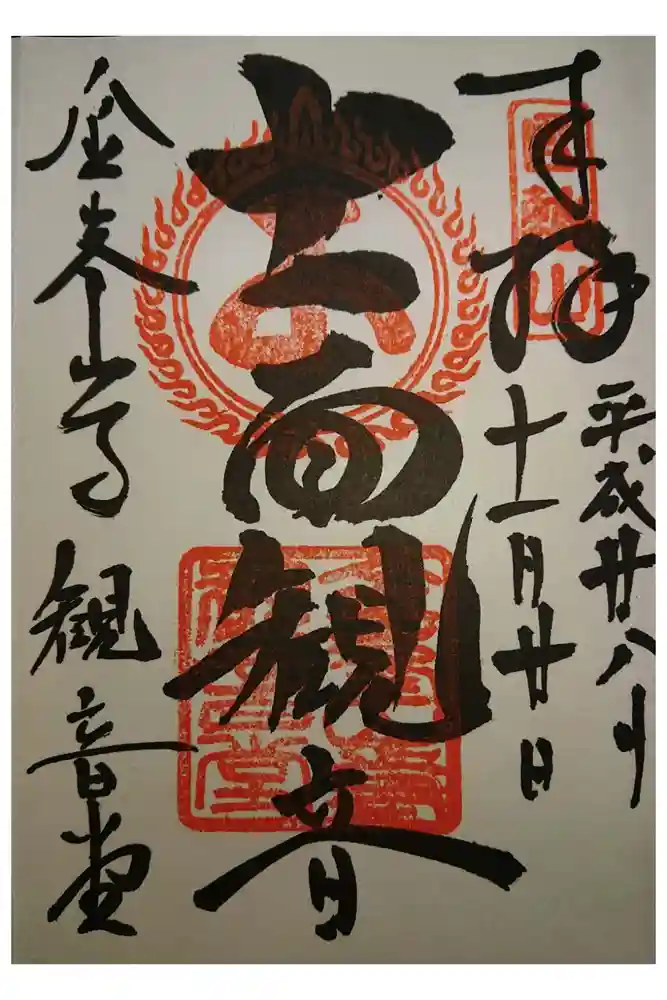 奉拝
國軸山
平成廿八年
十一月廿日
十一面観音
金峯山寺観音堂